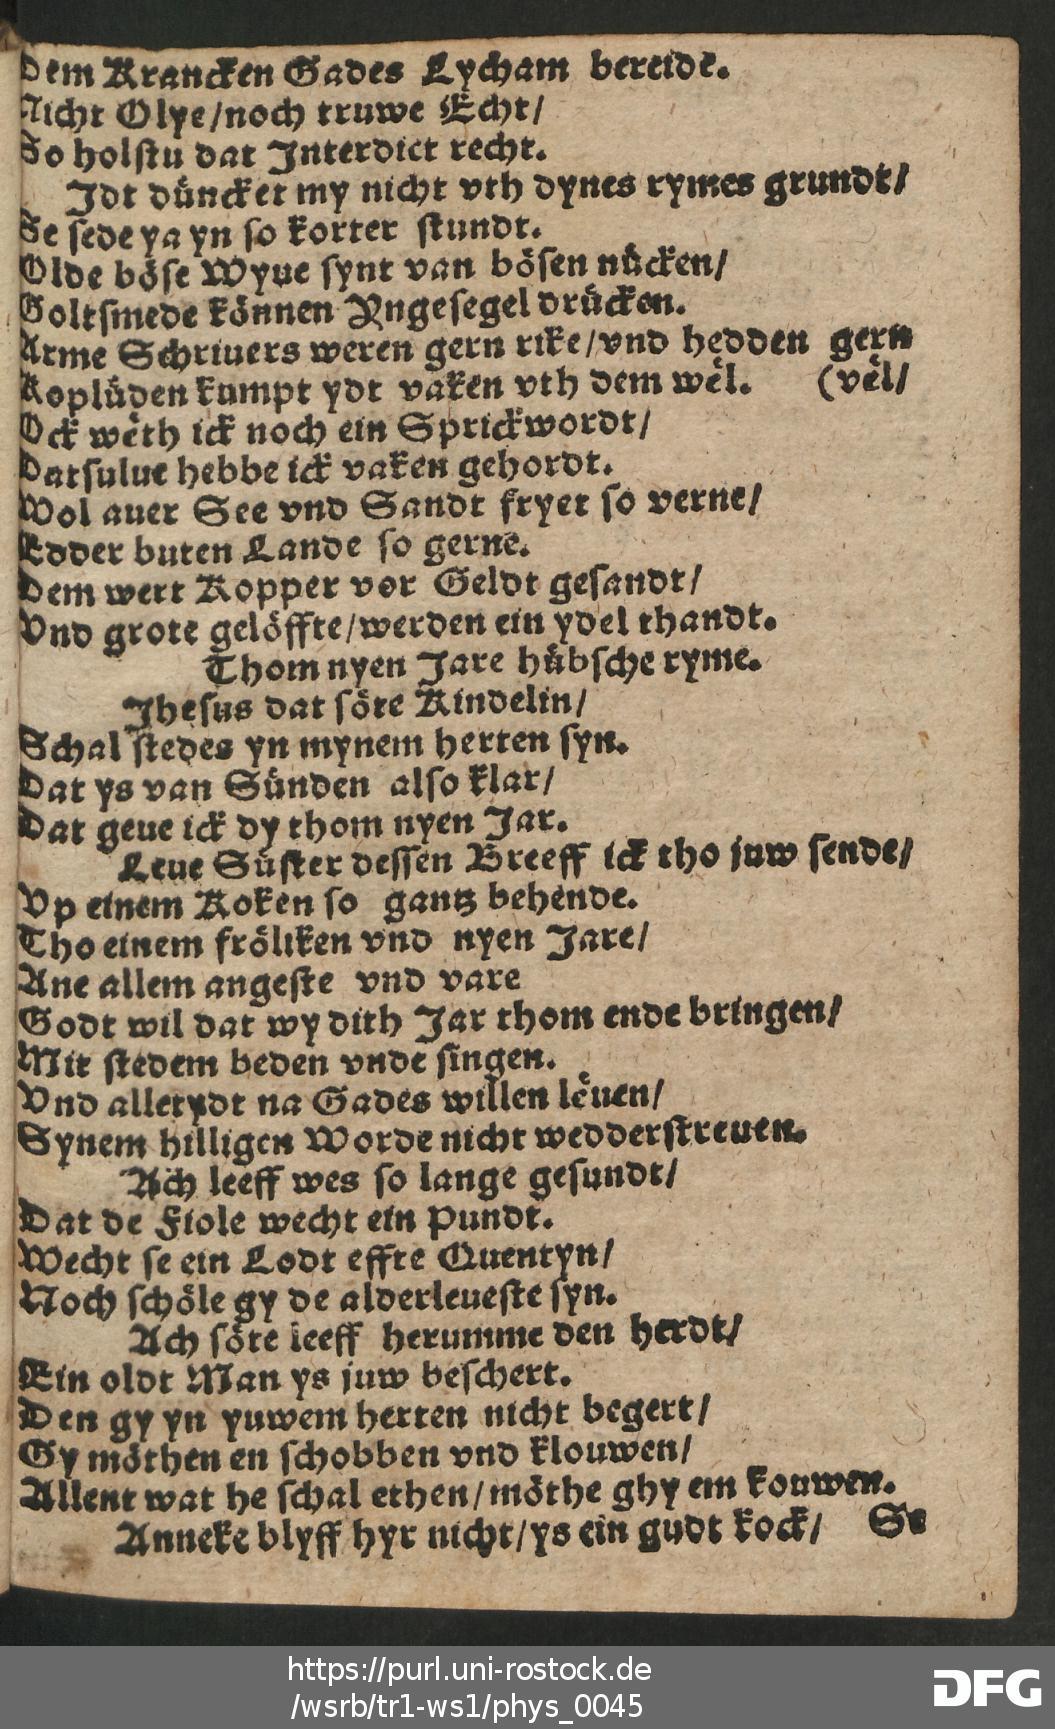 Dem Krancken Gades Lycham bereide.
Nicht Olye/noch truwe Echt/
So holstu dat Interdict recht.
Idt düncket my nicht vth dynes rymes grundt/
Se sede ya yn so korter stundt.
Olde böse Wyue synt van bösen nücken/
Goltsmede können Yngesegel drücken.
Arme Schriuers weren gern rike/vnd hedden gern
Koplüden kumpt ydt vaken vth dem wël. (vël/
Ock wëth ick noch ein Sprickwordt/
Datsulue hebbe ick vaken gehordt.
Wol auer See vnd Sandt fryet so verne/
Edder buten Lande so gerne.
Dem wert Kopper vor Geldt gesandt/
Vnd grote gelöffte/werden ein ydel thandt.
Thom nyen Jare hübsche ryme.
Jhesus dat söte Kindelin/
Schal stedes yn mynem herten syn.
Dat ys van Sünden also klar/
Dat geue ick dy thom nyen Jar.
Leue Süster dessen Breeff ick tho juw sende/
Vp einem Koken so gantz behende.
Tho einem fröliken vnd nyen Jare/
Ane allem angeste vnd vare
Godt wil dat wy dith Jar thom ende bringen/
Mit stedem beden vnde singen.
Vnd alletydt na Gades willen lëuen/
Synem hilligen Worde nicht wedderstreuen.
Ach leeff wes so lange gesundt/
Dat de Fiole wecht ein Pundt.
Wecht se ein Lodt effte Quentyn/
Noch schöle gy de alderleueste syn.
Ach söte leeff herumme den herdt/
Ein oldt Man ys juw beschert.
Den gy yn yuwem herten nicht begert/
Gy möthen en schobben vnd klouwen/
Allent wat he schal ethen/möthe ghy em kouwen.
Anneke blyff hyr nicht/ys ein gudt kock/ Se
https://purl.uni-rostock.de
/wsrb/tr1-ws1/phys_0045
DFG